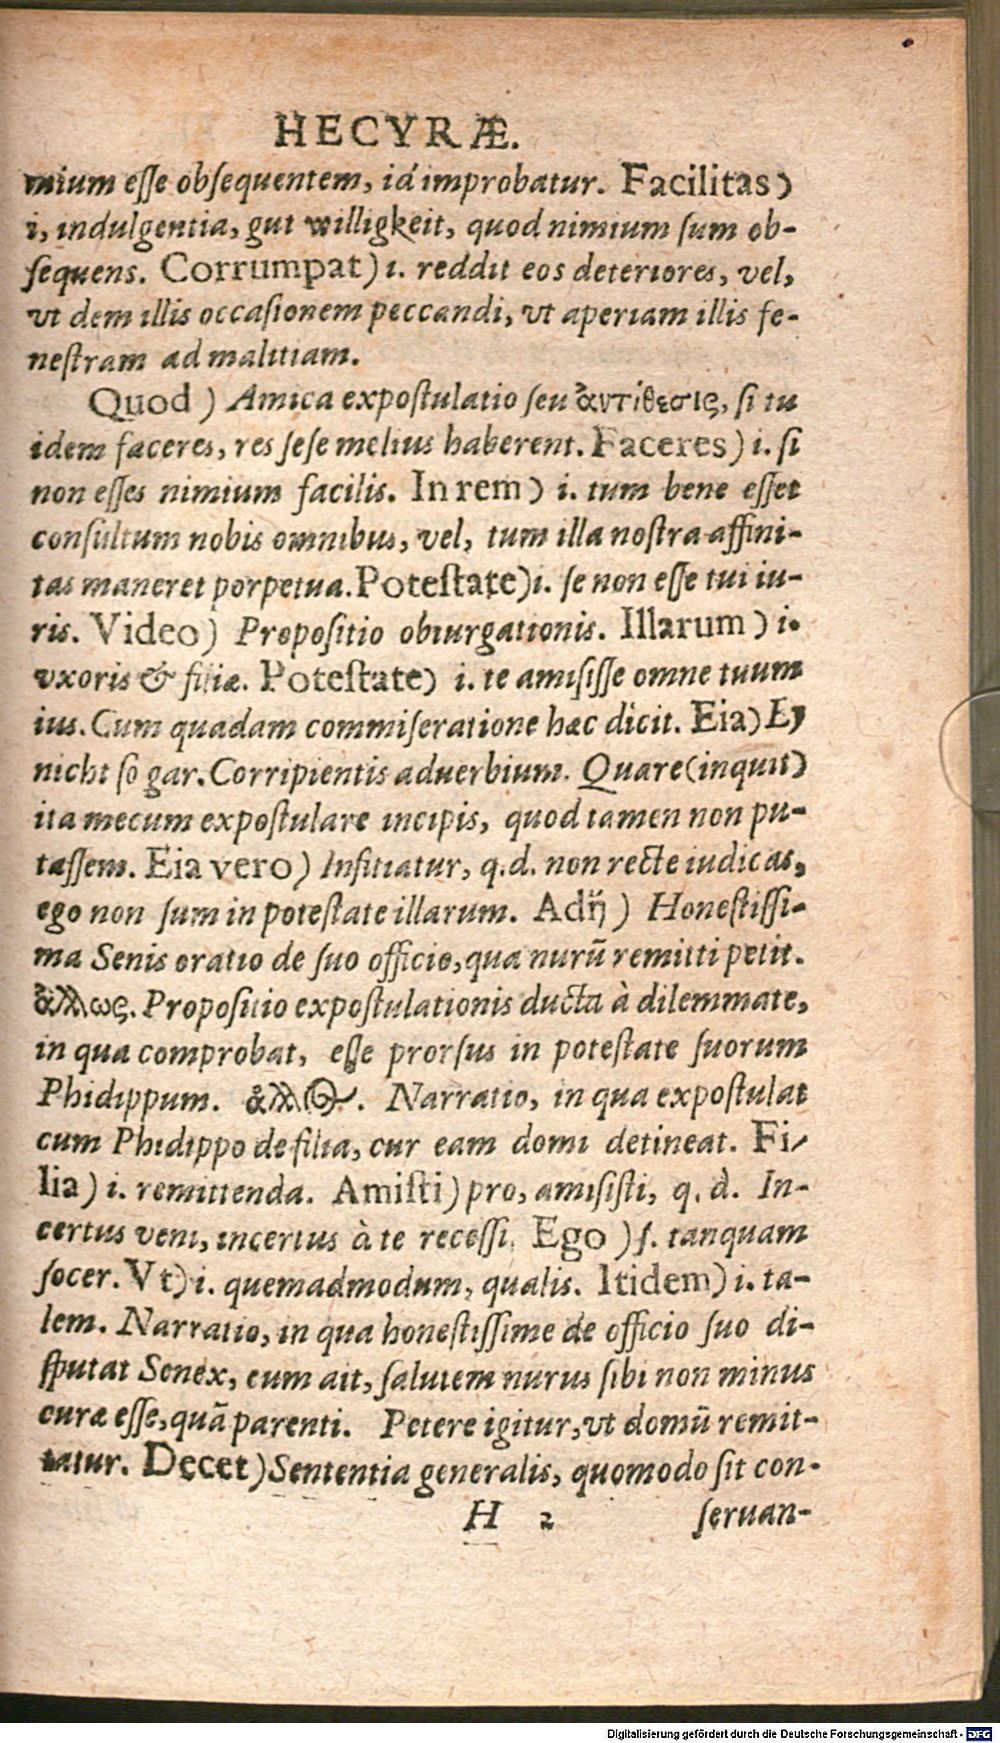 HECYRÆ.
mium eſſe obſequentem, id improbatur. Facilitas)
i, indulgentia, gut willigkeit, quod nimium ſum ob-
ſequens. Corrumpat) i. reddit eos deteriores, vel,
vt dem illis occaſionem peccandi, vt aperiam illis fe-
neſtram ad malitiam.
Quod) Amica expoſtulatio ſeu ἀντίθεσις, ſi tu
idem faceres, res ſeſe melius haberent. Faceres) i. ſi
non eſſes nimium facilis. In rem) i. tum bene eſſet
conſultum nobis omnibus, vel, tum illa noſtra affini-
tas maneret porpetua. Poteſtate) i. ſe non eſſe tui iu-
ris. Video) Propoſitio obiurgationis. Illarum) i.
vxoris & filiæ. Poteſtate) i. te amiſiſſe omne tuum
ius. Cum quadam commiſeratione hæc dicit. Eia) Ey
nicht ſo gar. Corripientis aduerbium. Quare (inquit)
ita mecum expoſtulare incipis, quod tamen non pu-
taſſem. Eia vero) Inficiatur, q.d. non recte iudicas,
ego non ſum in poteſtate illarum. Adη̈) Honeſtiſſi-
ma Senis oratio de ſuo officio, qua nurũ remitti petit.
ἄλλως. Propoſitio expoſtulationis ducta à dilemmate,
in qua comprobat, eſſe prorſus in poteſtate ſuorum
Phidippum. ἄλλος. Narratio, in qua expoſtulat
cum Phidippo de filia, cur eam domi detineat. Fi-
lia) i. remittenda. Amiſti) pro, amiſiſti, q. d. In-
certus veni, incertus à te receſſi. Ego) ſ. tanquam
ſocer. Vt) i. quemadmodum, qualis. Itidem) i. ta-
lem. Narratio, in qua honeſtiſſime de officio ſuo di-
ſputat Senex, cum ait, ſalutem nurus ſibi non minus
curæ eſſe, quã parenti. Petere igitur, vt domũ remit-
tatur. Decet) Sententia generalis, quomodo ſit con-
H 2 ſeruan-
Digitalisierung gefördert durch die Deutsche Forschungsgemeinschaft - DFG